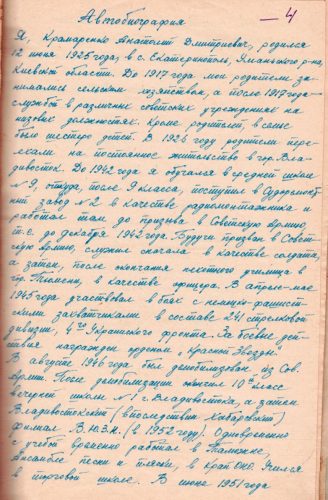 — 4
Автобиография
Я, Крамаренко Анатолий Дмитриевич, родился
12 июня 1925 года, в с. Екатеринополь, р-на,
Киевской области. До 1917 года мои родители за-
нимались сельским хозяйством, а после 1917 года -
службой в разных советских учреждениях на
низовых должностях. Кроме родителей, в семье
было шестеро детей. В 1928 году родители пере-
ехали на постоянное жительство в гор. Вла-
дивосток. До 1942 года я обучался в средней школе
№ 9, откуда, после 9 класса, поступил в Судоремонт-
ный завод № 2 в качестве радиомонтажника и
работал там до призыва в Советскую Армию,
т.е. до декабря 1942 года. Будучи призван в Совет-
скую Армию, служил сначала в качестве солдата,
а затем, после окончания пехотного училища в
гор. Тюмени, в качестве офицера. В апреле-мае
1945 года участвовал в боях с немецко-фашист-
скими захватчиками в составе 24 стрелковой
дивизии, 4го Украинского фронта. За боевые дей-
ствия награжден орденом „Красной Звезды".
В августе 1946 года был демобилизован из Сов.
Армии. После демобилизации окончил 10й класс
вечерней школы № 1 г. Владивостока, а затем
Владивостокский (впоследствии Хабаровский)
филиал В.Ю.З.И. (в 1952 году). Одновременно
с учебой временно работал в Таможне,
Ансамбле песни и пляски, в край ОНО. Учился
в торговой школе. В июне 1951 года